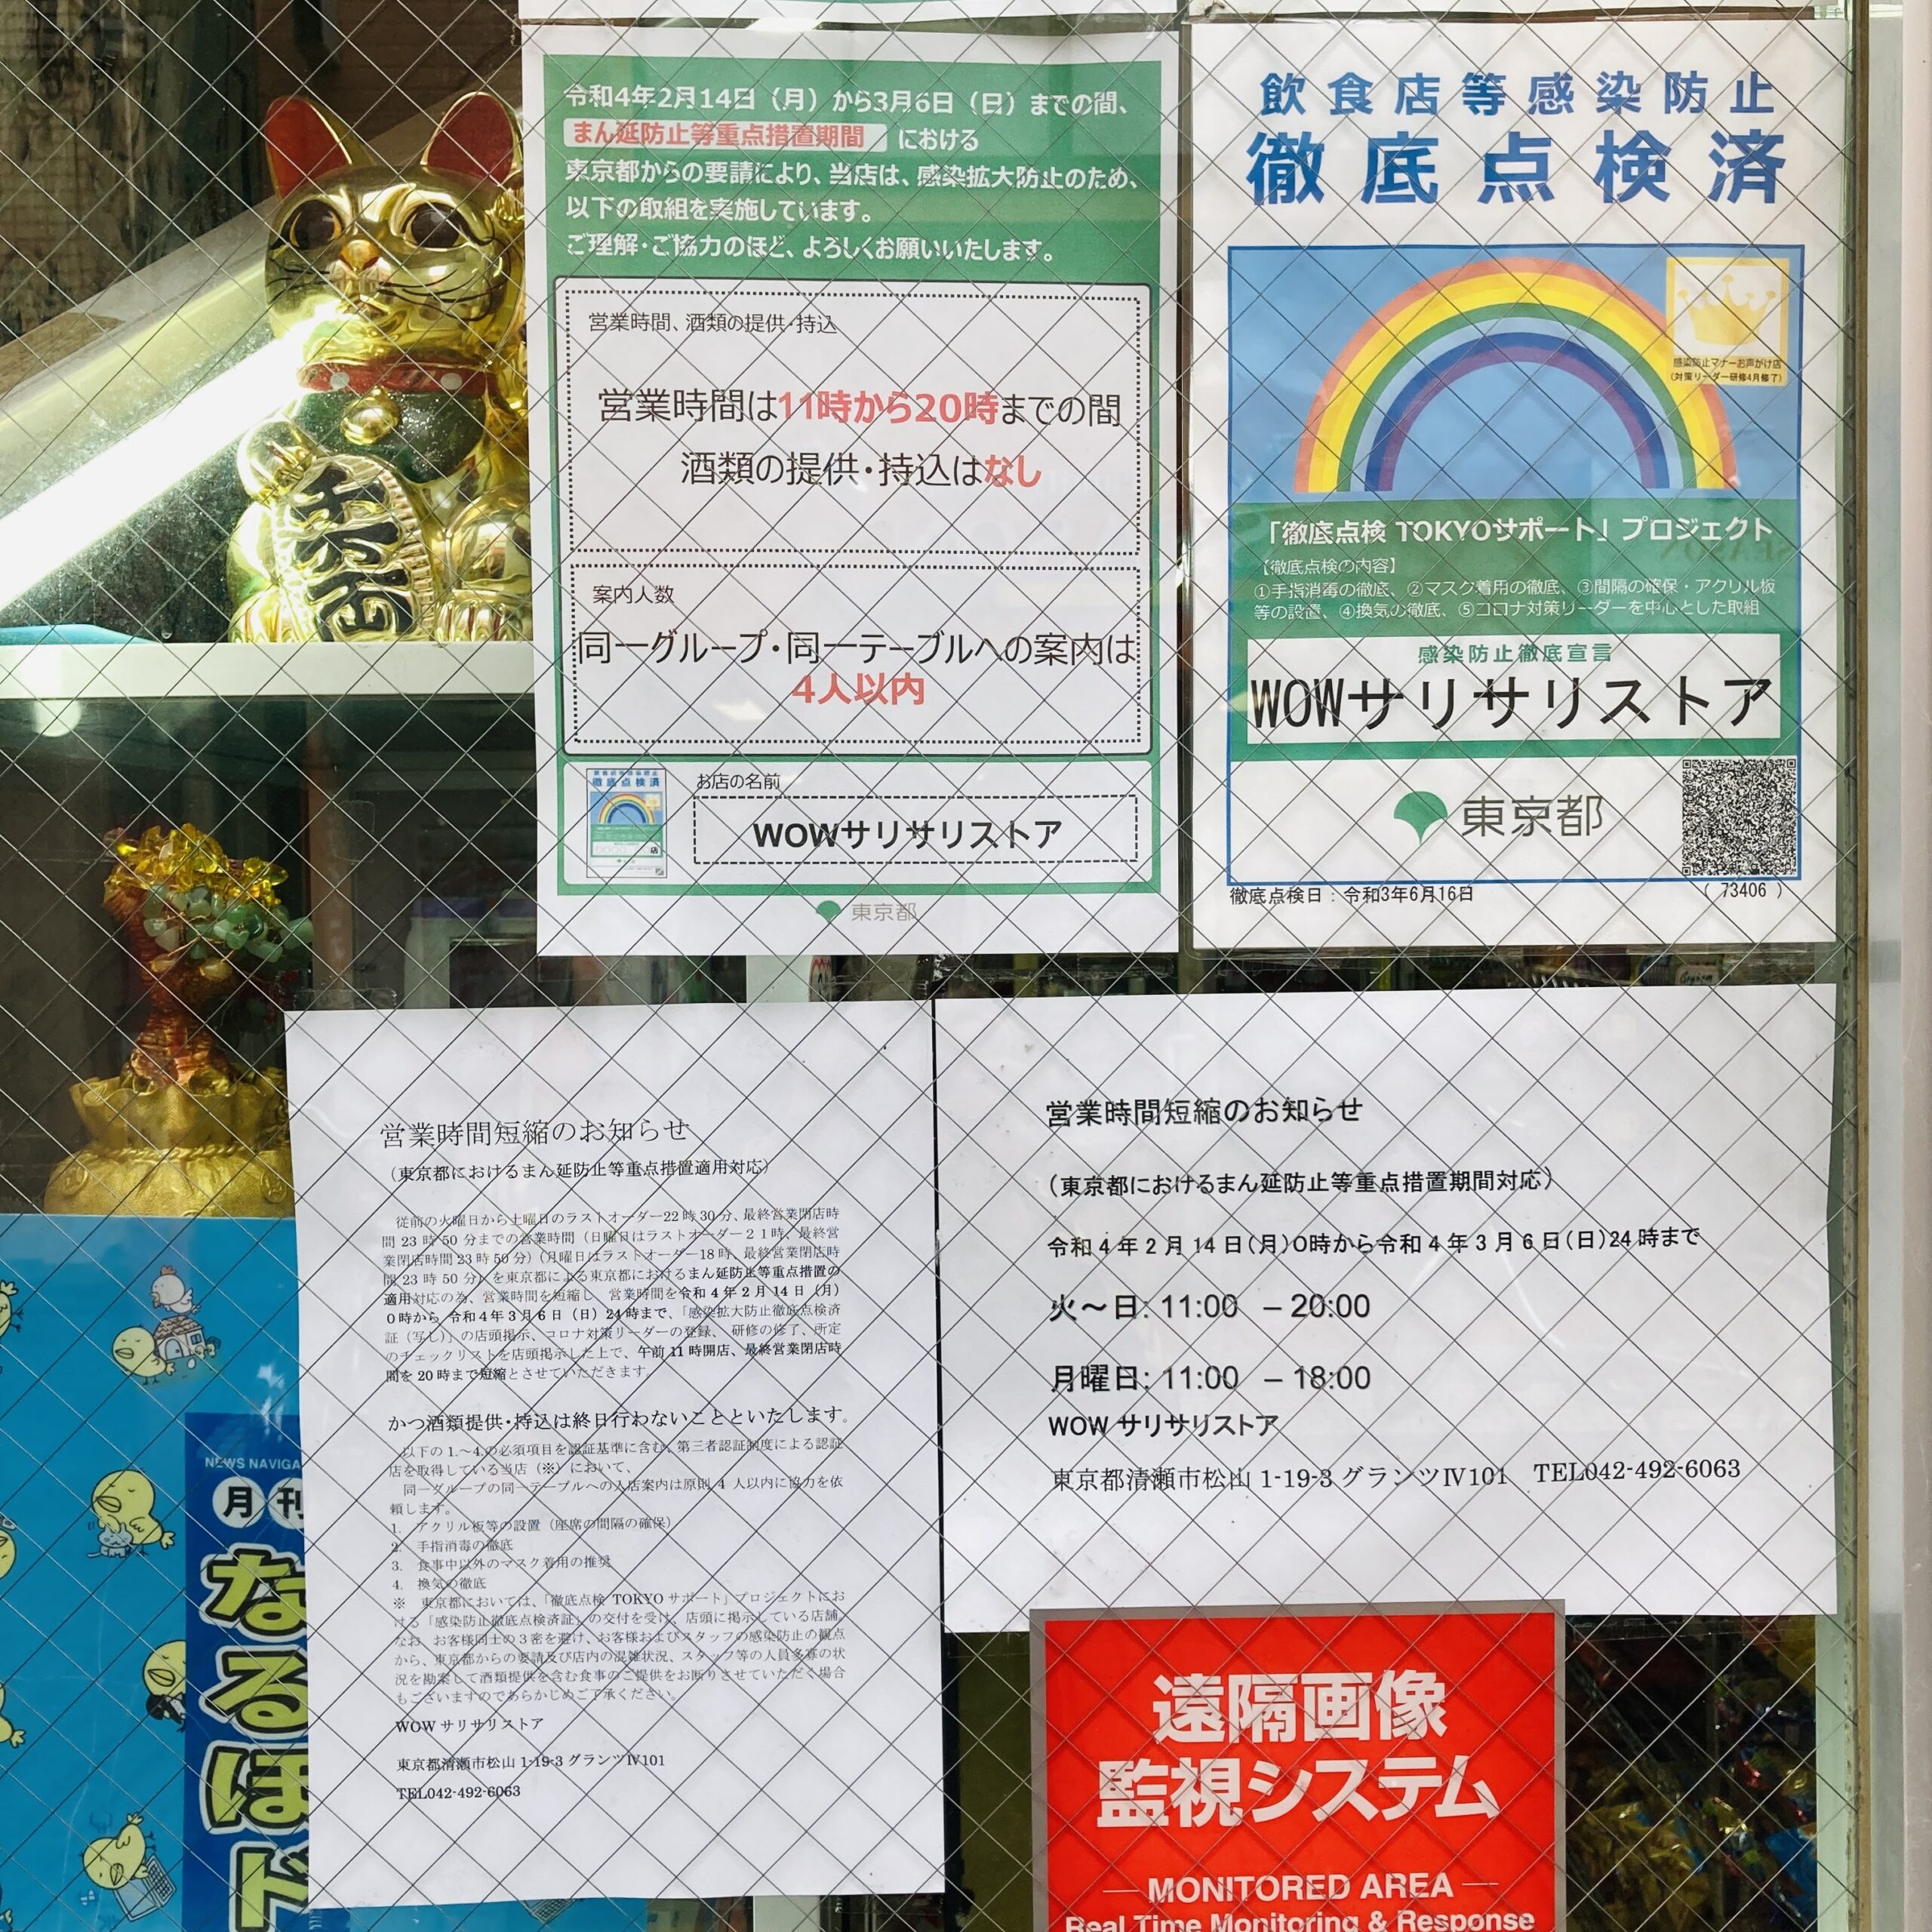 令和4年2月14日（月）から3月6日（日）までの間、
まん延防止等重点措置期間 における
東京都からの要請により、当店は、感染拡大防止のため、
以下の取組を実施しています。
ご理解・ご協力のほど、よろしくお願いいたします。
営業時間、酒類の提供・持込
営業時間は11時から20時までの間
酒類の提供・持込はなし
案内人数
同一グループ・同一テーブルへの案内は
4人以内
お店の名前
WOWサリサリストア
東京都
飲食店等感染防止
徹底点検済
感染防止マナーお声がけ店
（対策リーダー研修4月修了）
「徹底点検 TOKYOサポート」プロジェクト
【徹底点検の内容】
①手指消毒の徹底、②マスク着用の徹底、③間隔の確保・アクリル板
等の設置、④換気の徹底、⑤コロナ対策リーダーを中心とした取組
感染防止徹底宣言
WOWサリサリストア
東京都
徹底点検日：令和3年6月16日
（ 73406 ）
千万両
営業時間短縮のお知らせ
（東京都におけるまん延防止等重点措置適用対応）
従前の火曜日から土曜日のラストオーダー22時30分、最終営業閉店時
間 23 時 50 分までの営業時間（日曜日はラストオーダー２１時、最終営
業閉店時間 23 時 50 分）（月曜日はラストオーダー18 時、最終営業閉店時
間 23 時 50 分）を東京都による東京都におけるまん延防止等重点措置の
適用対応の為、営業時間を短縮し、営業時間を令和４年２月 14 日（月）
０時から 令和４年３月６日（日）24 時まで、「感染拡大防止徹底点検済
証（写し）」の店頭掲示、コロナ対策リーダーの登録、研修の修了、所定
のチェックリストを店頭掲示した上で、午前 11 時開店、最終営業閉店時
間を 20 時まで短縮とさせていただきます。
かつ酒類提供・持込は終日行わないことといたします。
以下の 1.～4.の必須項目を認証基準に含む、第三者認証制度による認証
店を取得している当店（※）において、
同一グループの同一テーブルへの入店案内は原則 4 人以内に協力を依
頼します。
1. アクリル板等の設置（座席の間隔の確保）
2. 手指消毒の徹底
3. 食事中以外のマスク着用の推奨
4. 換気の徹底
※ 東京都においては、「徹底点検 TOKYO サポート」プロジェクトにお
ける「感染防止徹底点検済証」の交付を受け、店頭に掲示している店舗。
なお、お客様同士の３密を避け、お客様およびスタッフの感染防止の観点
から、東京都からの要請及び店内の混雑状況、スタッフ等の人員多寡の状
況を勘案して酒類提供を含む食事のご提供をお断りさせていただく場合
もございますのであらかじめご了承ください。
WOW サリサリストア
東京都清瀬市松山 1-19-3 グランツⅣ101
TEL042-492-6063
営業時間短縮のお知らせ
（東京都におけるまん延防止等重点措置期間対応）
令和４年２月 14 日(月)0時から令和４年３月６日(日)24 時まで
火～日: 11:00 – 20:00
月曜日: 11:00 – 18:00
WOW サリサリストア
東京都清瀬市松山 1-19-3 グランツⅣ101 TEL042-492-6063
NEWS NAVIGA
月刊
なるほ
遠隔画像
監視システム
MONITORED AREA
Real Time Monitoring & Response